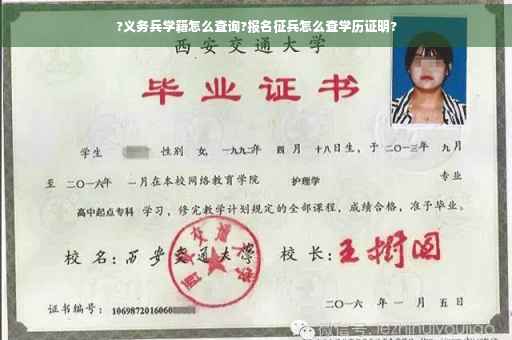 ?义务兵学籍怎么查询?报名征兵怎么查学历证明?
西安交通大学
毕业证书
学生 性别 女, 一九九二年 四 月 十八日生, 于 二〇一三年 九月
至 二〇一六年 一月在本校网络教育学院 护理学 专业
高中起点专科 学习, 修完教学计划规定的全部课程, 成绩合格, 准予毕业。
校 名: 西安交通大学 校 长: 王树国
西安交通大学
二〇一六 年 一 月 五 日
证书编号: 1069872016060
微信号: jiezhihuiyoujiao